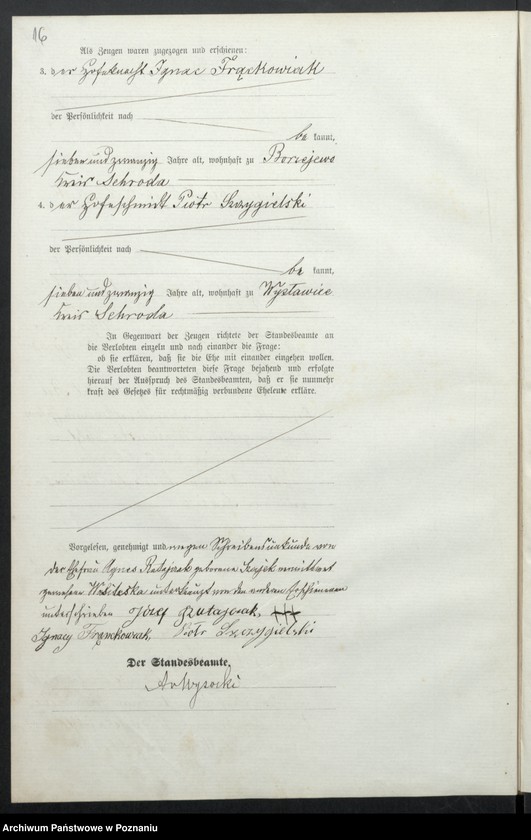 16
Als Zeugen waren zugezogen und erschienen:
3. der Hofeknecht Ignac Frąckowiak
der Persönlichkeit nach
be kannt,
sieben und zwanzig Jahre alt, wohnhaft zu Borzejewo
Kreis Schroda
4. der Hofeschmidt Piotr Szczygielski
der Persönlichkeit nach
be kannt,
sieben und zwanzig Jahre alt, wohnhaft zu Wysławice
Kreis Schroda
In Gegenwart der Zeugen richtete der Standesbeamte an
die Verlobten einzeln und nach einander die Frage:
ob sie erklären, daß sie die Ehe mit einander eingehen wollen.
Die Verlobten beantworteten diese Frage bejahend und erfolgte
hierauf der Ausspruch des Standesbeamten, daß er sie nunmehr
kraft des Gesetzes für rechtmäßig verbundene Eheleute erkläre.
Vorgelesen, genehmigt und wegen Schreibensunkunde von
der Ehefrau Agnes Ratajczak geborene verwittwet
gewesene unterkreuzt von den anderen Erschienenen
unterschrieben Józef Ratajczak, +++
Ignacy Frąnckowiak, Piotr Szczygielski
Der Standesbeamte,
Wysocki
Archiwum Państwowe w Poznaniu